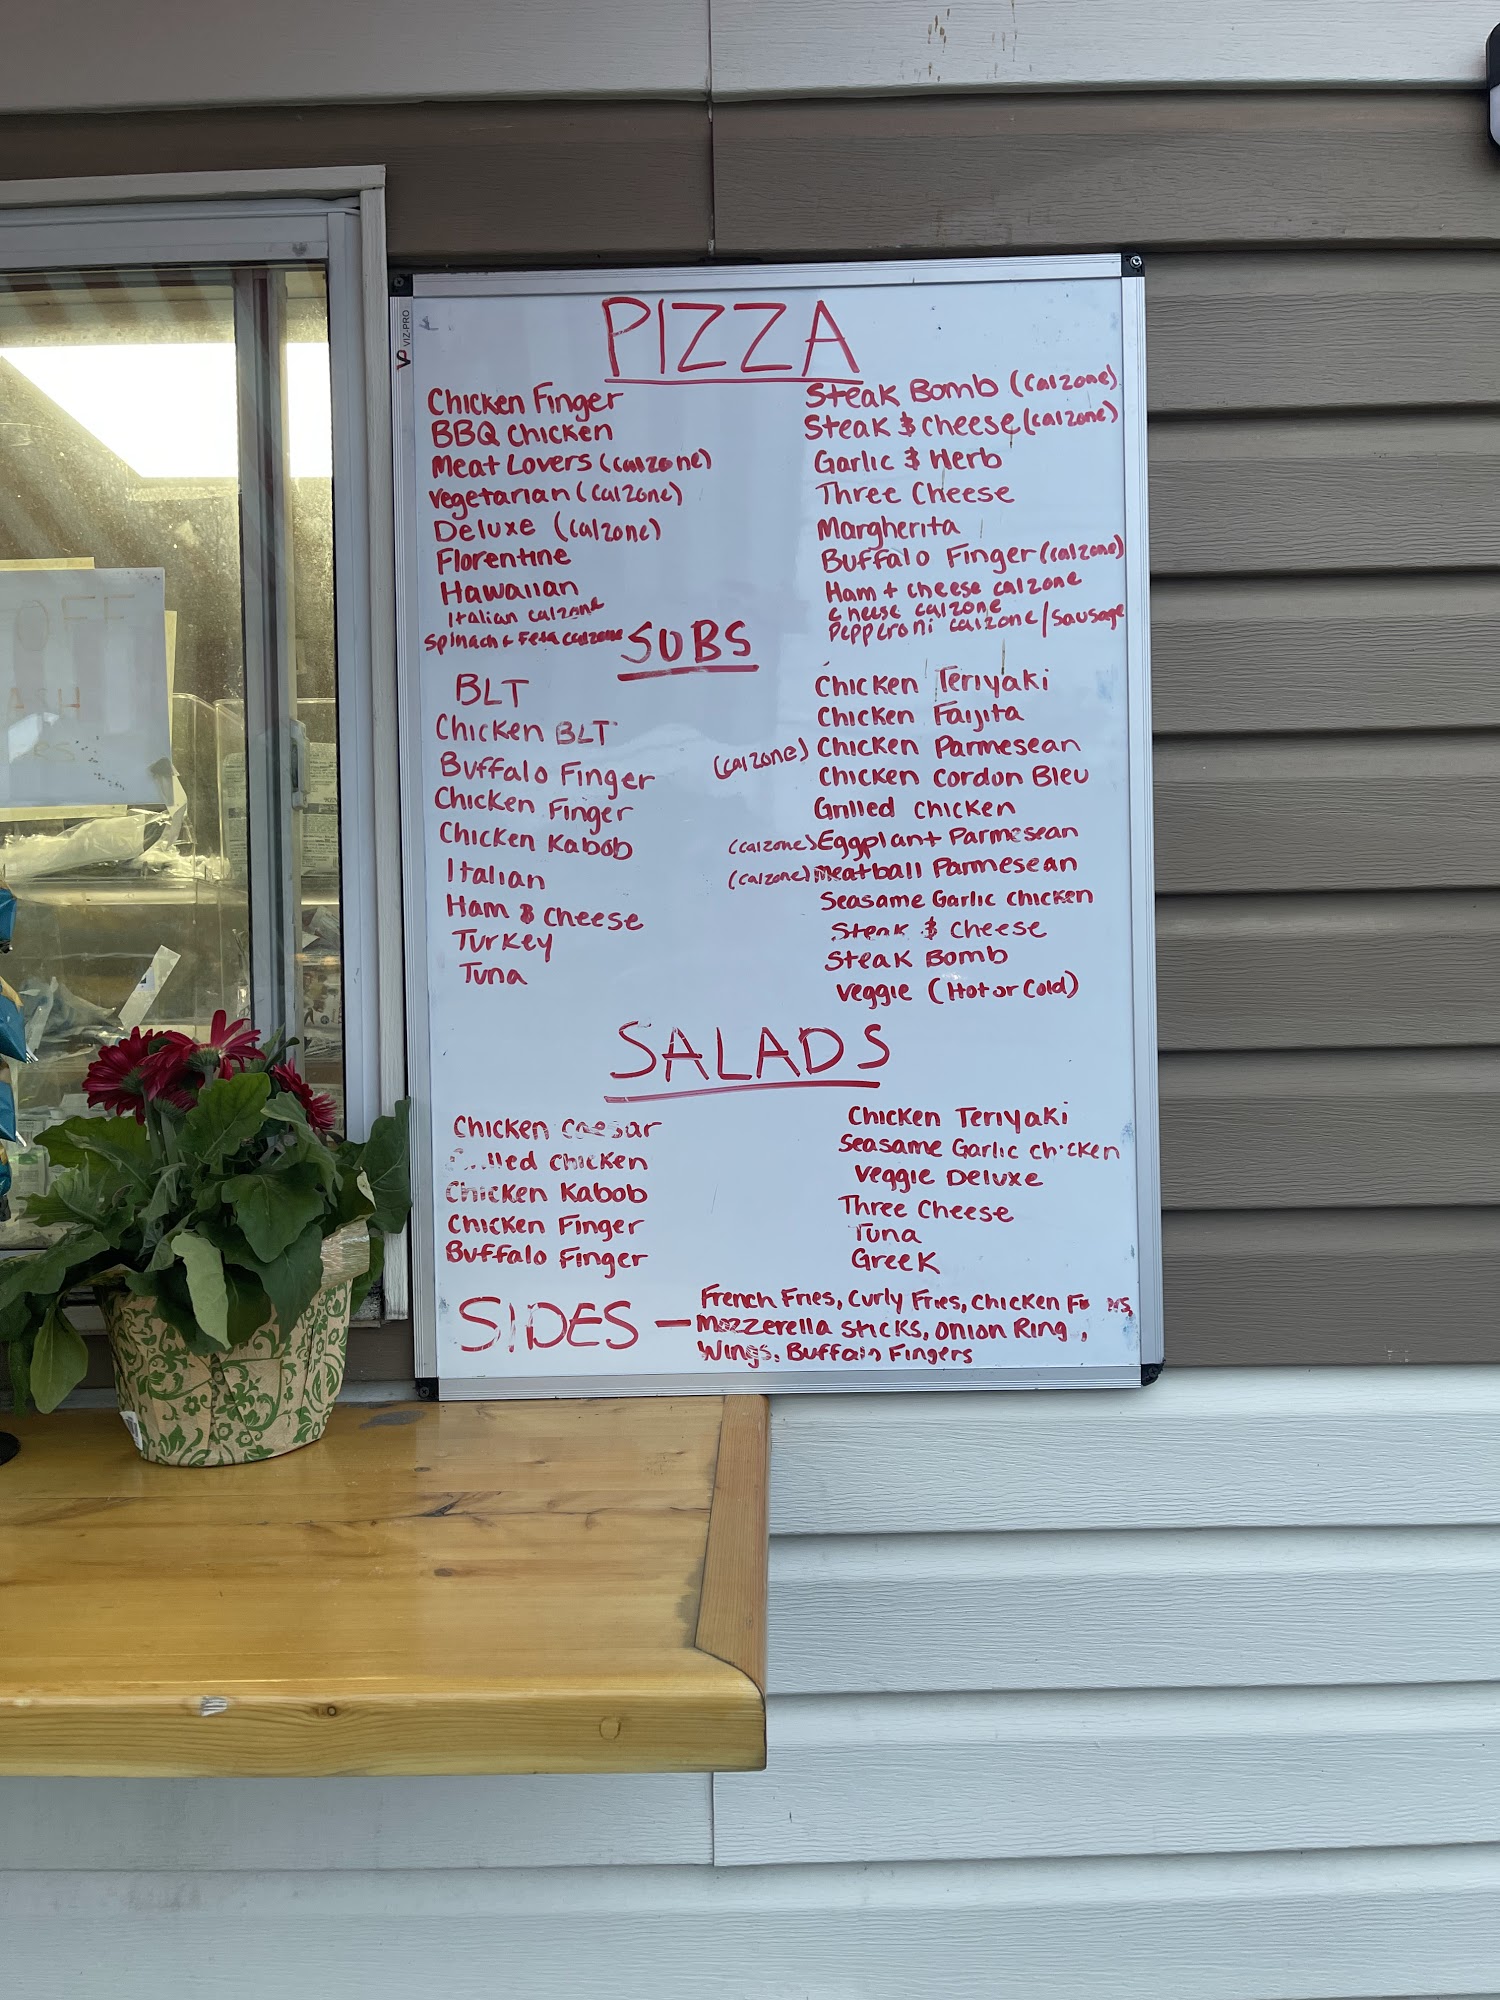 VIZ-PRO
PIZZA
Chicken Finger
BBQ Chicken
Meat Lovers (calzone)
Vegetarian (calzone)
Deluxe (calzone)
Florentine
Hawaiian
Italian calzone
Spinach + Feta calzone
Steak Bomb (calzone)
Steak & cheese (calzone)
Garlic & Herb
Three Cheese
Margherita
Buffalo Finger (calzone)
Ham + cheese calzone
cheese calzone
Pepperoni calzone/Sausage
SUBS
BLT
Chicken BLT
Buffalo Finger
Chicken Finger
Chicken Kabob
Italian
Ham & Cheese
Turkey
Tuna
Chicken Teriyaki
Chicken Faijita
(calzone) Chicken Parmesean
Chicken Cordon Bleu
Grilled Chicken
(calzone) Eggplant Parmesean
(calzone) Meatball Parmesean
Seasame Garlic chicken
Steak & Cheese
Steak Bomb
Veggie (Hot or Cold)
SALADS
Chicken Caesar
Grilled Chicken
Chicken Kabob
Chicken Finger
Buffalo Finger
Chicken Teriyaki
Seasame Garlic chicken
Veggie Deluxe
Three Cheese
Tuna
Greek
SIDES — French Fries, Curly Fries, Chicken
Mozzerella sticks, Onion Ring ,
Wings, Buffalo Fingers
OFF